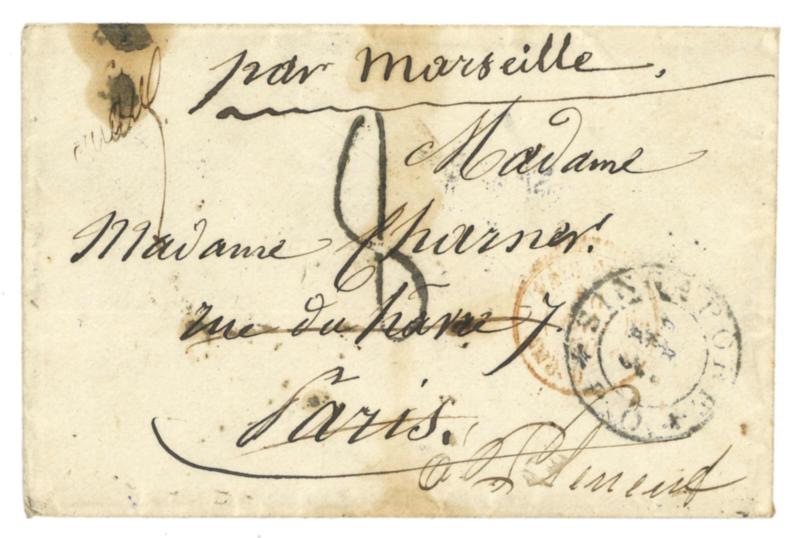 par Marseille.
8
Madame
Madame Charner.
rue du hâvre 7
Paris.
à
SINGAPORE